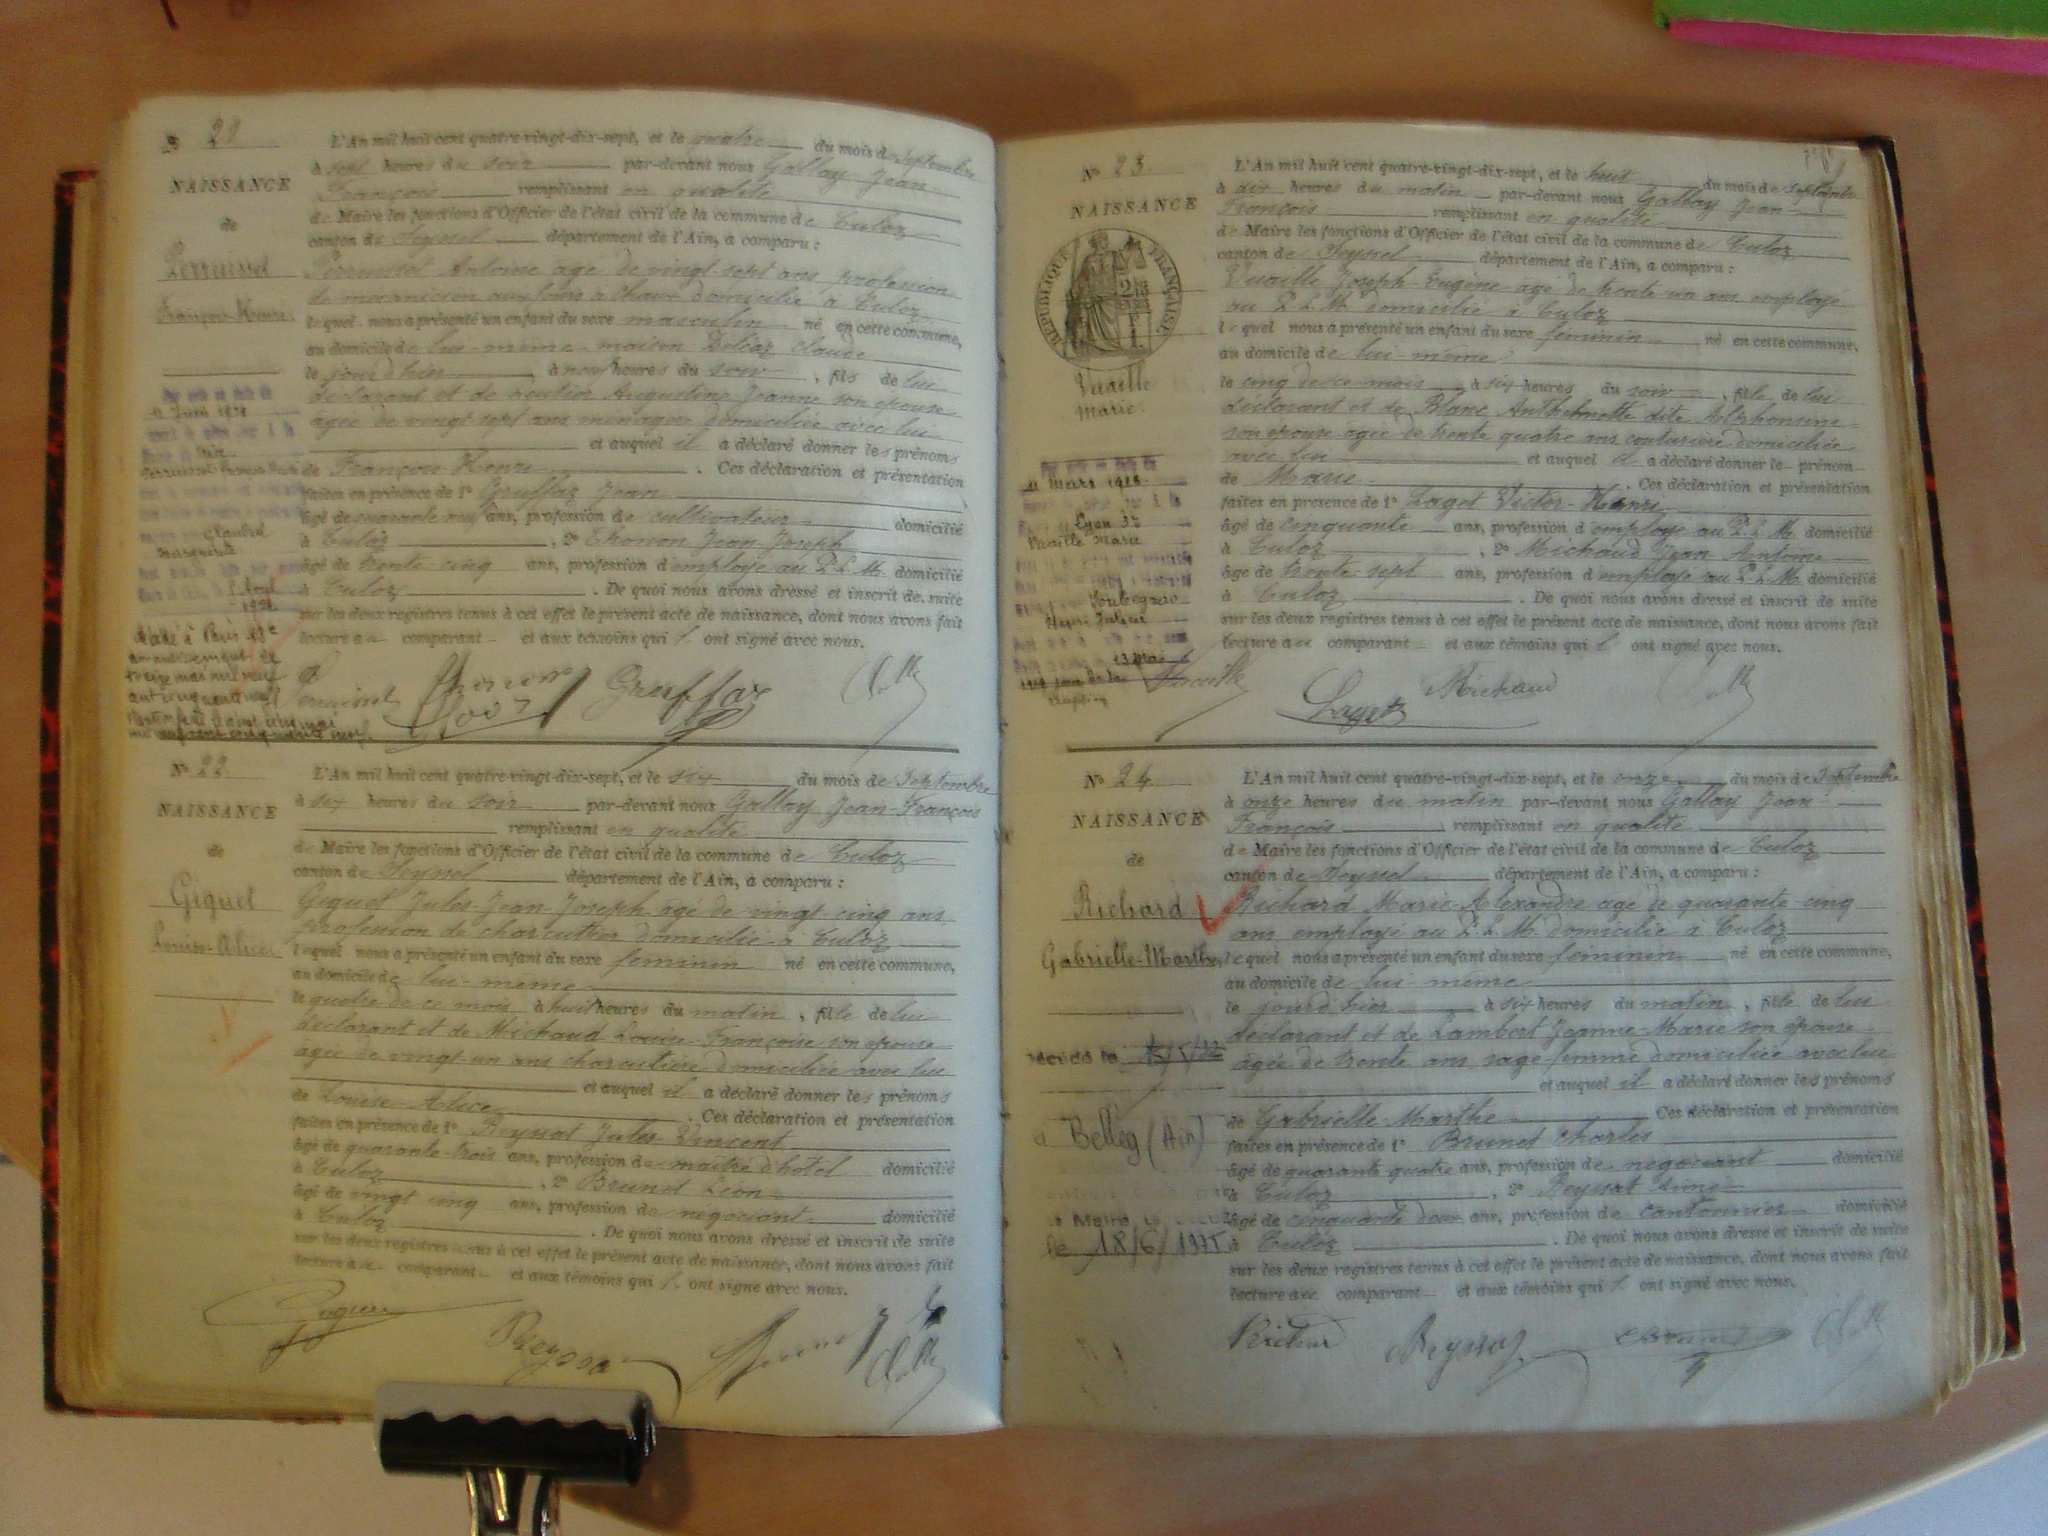 21
L'An mil huit cent quatre-vingt-dix-sept, et le quatre du mois de Septembre
à sept heures du soir par-devant nous Gallay Jean
François remplissant en qualité
NAISSANCE
de Maire les fonctions d'Officier de l'état civil de la commune de Culoz
de
canton de Seyssel département de l'Ain, a comparu :
Perrusset
François-Henri
Perrusset Antoine âgé de vingt sept ans profession
de mécanicien aux fours à chaux domicilié à Culoz
lequel nous a présenté un enfant du sexe masculin né en cette commune,
au domicile de lui-même maison Claude
le jour d'hier à neuf heures du soir, fils de lui
déclarant et de Augustine Jeanne son épouse
âgée de vingt sept ans ménagère domiciliée avec lui
et auquel il a déclaré donner les prénoms
de François Henri. Ces déclaration et présentation
faites en présence de 1° Gruffaz Jean
âgé de quarante neuf ans, profession de cultivateur domicilié
à Culoz, 2° Thonon Jean Joseph
âgé de trente cinq ans, profession d'employé au P.L.M. domicilié
à Culoz. De quoi nous avons dressé et inscrit de suite
sur les deux registres tenus à cet effet le présent acte de naissance, dont nous avons fait
lecture au comparant et aux témoins qui ont signé avec nous.
Gruffaz
N° 22
NAISSANCE
de
Giguet
Louise-Alice
L'An mil huit cent quatre-vingt-dix-sept, et le six du mois de Septembre
à six heures du soir par-devant nous Gallay Jean-François
remplissant en qualité
de Maire les fonctions d'Officier de l'état civil de la commune de Culoz
canton de Seyssel département de l'Ain, a comparu :
Giguet Jules Jean Joseph âgé de vingt cinq ans
profession de charcutier domicilié à Culoz
lequel nous a présenté un enfant du sexe féminin né en cette commune,
au domicile de lui-même
le quatre de ce mois à huit heures du matin, fille de lui
déclarant et de Michaud Louise Françoise son épouse
âgée de vingt un ans charcutière domiciliée avec lui
et auquel il a déclaré donner les prénoms
de Louise-Alice. Ces déclaration et présentation
faites en présence de 1° Reyssat Jules Vincent
âgé de quarante-trois ans, profession de maître d'hôtel domicilié
à Culoz, 2° Brunet Léon
âgé de vingt cinq ans, profession de négociant domicilié
à Culoz. De quoi nous avons dressé et inscrit de suite
sur les deux registres tenus à cet effet le présent acte de naissance, dont nous avons fait
lecture au comparant et aux témoins qui ont signé avec nous.
N° 23.
NAISSANCE
RÉPUBLIQUE FRANÇAISE
Vuaille
Marie.
L'An mil huit cent quatre-vingt-dix-sept, et le huit du mois de Septembre
à dix heures du matin par-devant nous Gallay Jean
François remplissant en qualité
de Maire les fonctions d'Officier de l'état civil de la commune de Culoz
canton de Seyssel département de l'Ain, a comparu :
Vuaille Joseph Eugène âgé de trente un ans employé
au P.L.M. domicilié à Culoz
lequel nous a présenté un enfant du sexe féminin né en cette commune,
au domicile de lui-même
le cinq de ce mois à six heures du soir, fille de lui
déclarant et de Blanc Anthelmette dite Alphonsine
son épouse âgée de trente quatre ans couturière domiciliée
avec lui et auquel il a déclaré donner le prénom
de Marie. Ces déclaration et présentation
faites en présence de 1° Laget Victor-Henri
âgé de cinquante ans, profession d'employé au P.L.M. domicilié
à Culoz, 2° Michaud Jean Antoine
âgé de trente-sept ans, profession d'employé au P.L.M. domicilié
à Culoz. De quoi nous avons dressé et inscrit de suite
sur les deux registres tenus à cet effet le présent acte de naissance, dont nous avons fait
lecture au comparant et aux témoins qui ont signé avec nous.
Vuaille
Laget
Michaud
N° 24
NAISSANCE
de
Richard
Gabrielle-Marthe
à Belley (Ain)
le 18/6/1975
L'An mil huit cent quatre-vingt-dix-sept, et le onze du mois de Septembre
à onze heures du matin par-devant nous Gallay Jean
François remplissant en qualité
de Maire les fonctions d'Officier de l'état civil de la commune de Culoz
canton de Seyssel département de l'Ain, a comparu :
Richard Marie-Alexandre âgé de quarante cinq
ans employé au P.L.M. domicilié à Culoz
lequel nous a présenté un enfant du sexe féminin né en cette commune,
au domicile de lui-même
le jour d'hier à six heures du matin, fille de lui
déclarant et de Lambert Jeanne-Marie son épouse
âgée de trente ans sage femme domiciliée avec lui
et auquel il a déclaré donner les prénoms
de Gabrielle-Marthe Ces déclaration et présentation
faites en présence de 1° Brunet Charles
âgé de quarante quatre ans, profession de négociant domicilié
à Culoz, 2° Reyssat Aimé
âgé de cinquante deux ans, profession de cantonnier domicilié
à Culoz. De quoi nous avons dressé et inscrit de suite
sur les deux registres tenus à cet effet le présent acte de naissance, dont nous avons fait
lecture au comparant et aux témoins qui ont signé avec nous.
Richard
Reyssat